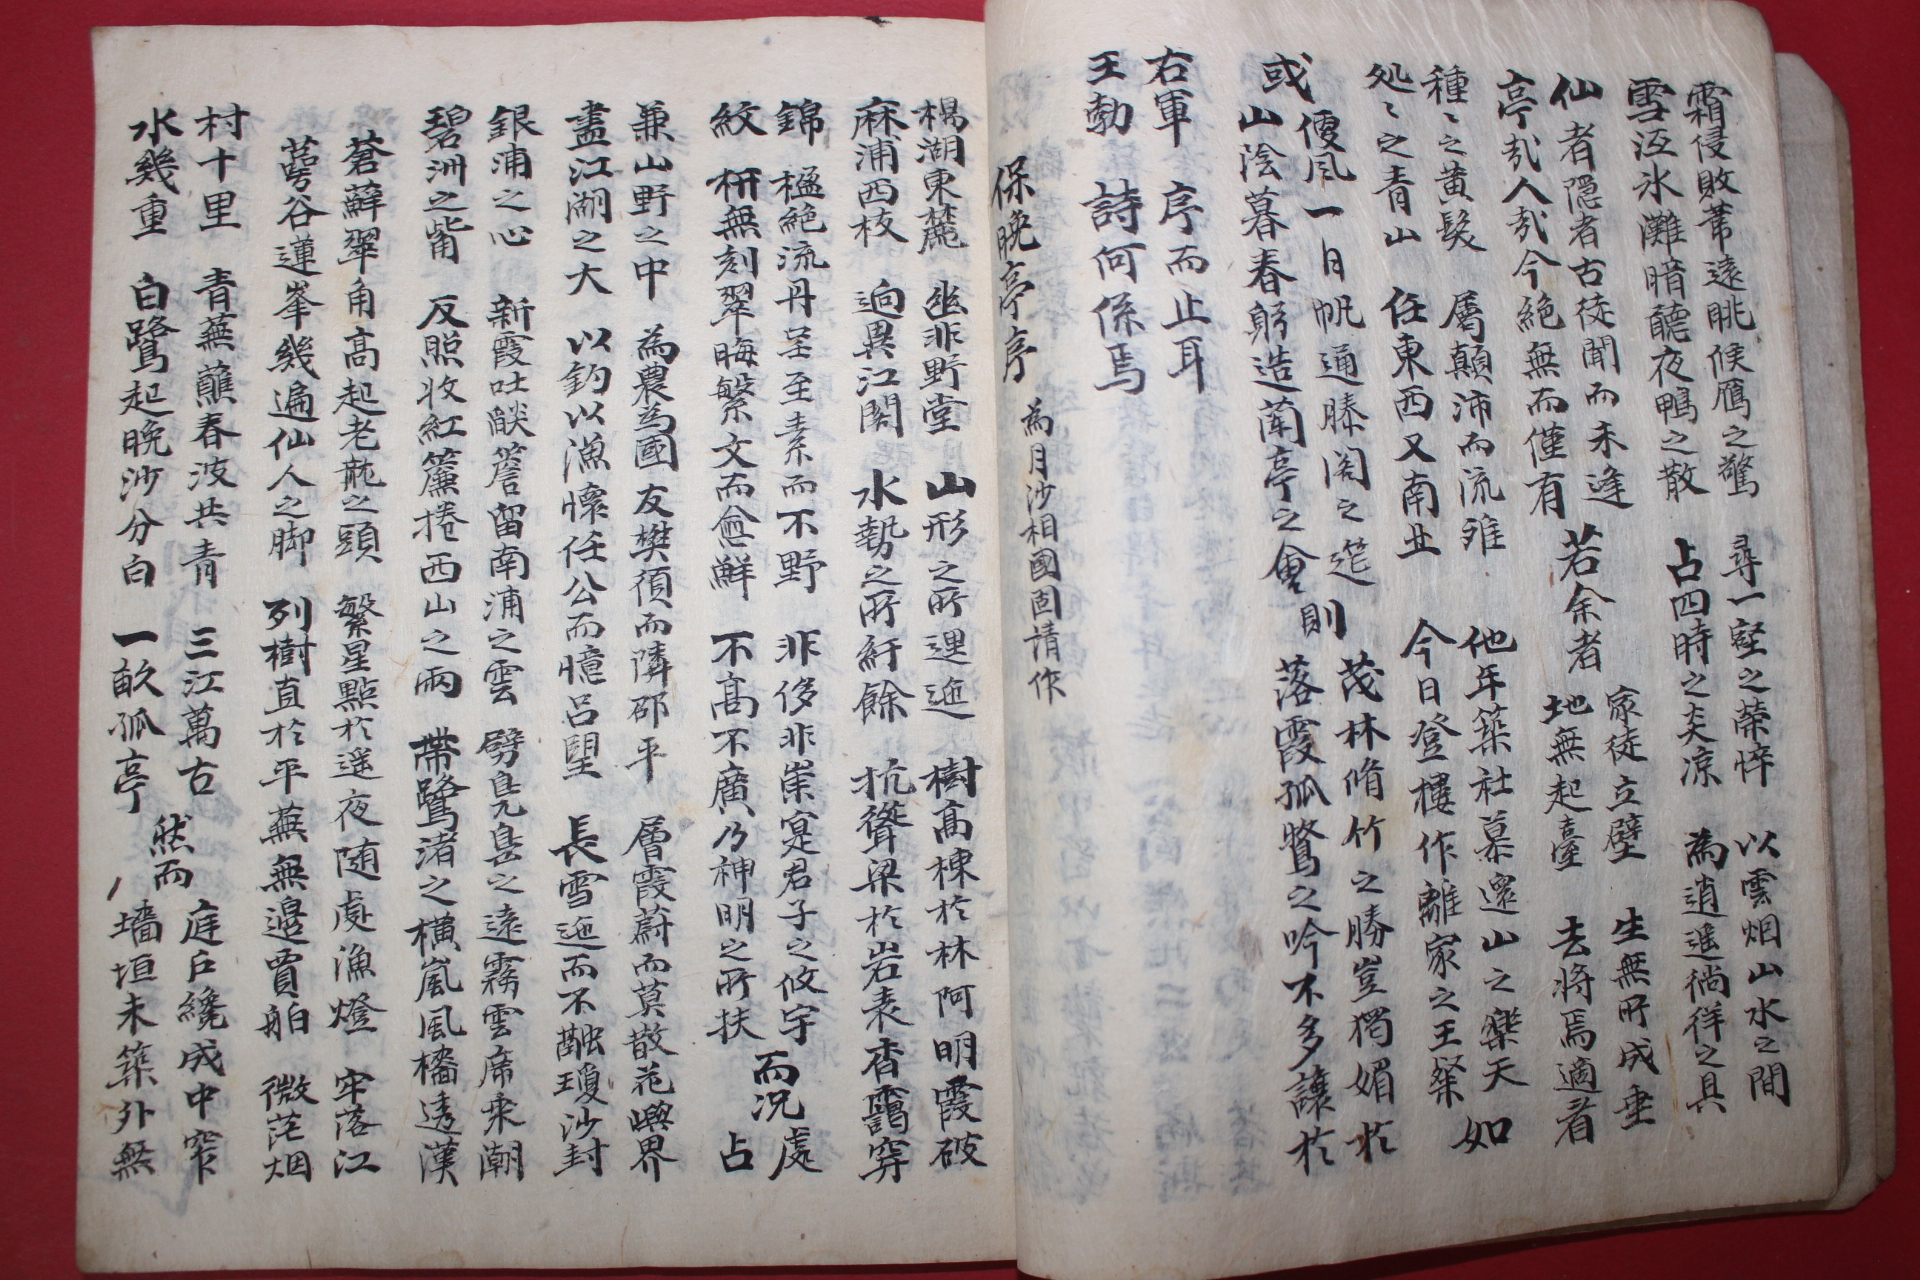 霜侵敗葦遠眺候鴈之驚 尋一壑之榮悴 以雲烟山水之間
雪沍氷灘暗聽夜鴨之散 占四時之炎凉 為逍遥徜徉之具
仙者隱者古徒聞而未逢 若余者 家徒立壁 生無所成 垂
亭哉人哉今絶無而僅有 地無起臺 去將焉適 者
種〻之黄髮 屬顛沛而流離 他年築社慕還山之樂天 如
処〻之青山 任東西又南北 今日登樓作離家之王粲
便風一日帆通滕閣之筵 則 茂林脩竹之勝豈獨媚於
或 山陰暮春躬造蘭亭之會 落霞孤鶩之吟不多讓於
右軍 序而止耳
王勃 詩何係焉
保晚亭序 為月沙相國固請作
楊湖東麓 坐非野堂 山形之所邐迤 樹高棟於林阿明霞破
麻浦西枝 逈異江閣 水勢之所紆餘 抗聳梁於岩表香靄穿
錦 楹絶流丹呈至素而不野 非侈非崇寔君子之攸宇 而况 處
紋 枅無刻翠晦繁文而愈鮮 不高不廣乃神明之所扶 占
兼山野之中 為農為圃友樊湏而隣邵平 層霞蔚而莫散花嶼界
盡江湖之大 以釣以漁懷任公而憶呂望 長雪迤而不融瓊沙封
銀浦之心 新霞吐燄簷留南浦之雲 劈鳧島之遠霧雲席乘潮
碧洲之觜 反照收紅簾捲西山之雨 帶鷺渚之橫嵐風檣透漢
蒼蘚翠角高起老龍之頭 繁星點於遥夜随處漁燈 牢落江
萼谷蓮峯幾遍仙人之脚 列樹直於平蕪無邊賈舶 微茫烟
村十里 青蕪蘸春波共青 三江萬古 然而 庭户纔成中窄
水幾重 白鷺起晚沙分白 一畝孤亭 墻垣未築外無